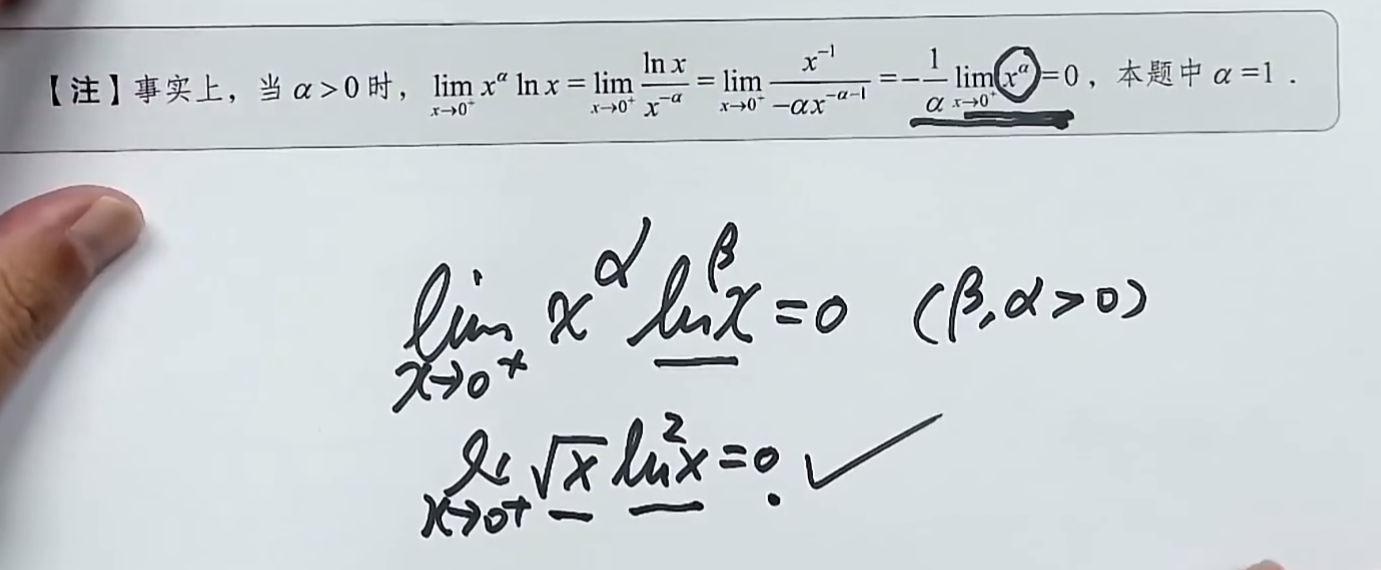 【注】事实上，当 α>0 时，lim_{x→0⁺} x^α ln x = lim_{x→0⁺} \frac{ln x}{x^{-α}} = lim_{x→0⁺} \frac{x^{-1}}{-αx^{-α-1}} = -\frac{1}{α} lim_{x→0⁺} x^α = 0，本题中 α=1．
lim_{x→0⁺} x^α ln^β x = 0 (β,α>0)
li_{x→0⁺} √x ln² x = 0. ✓